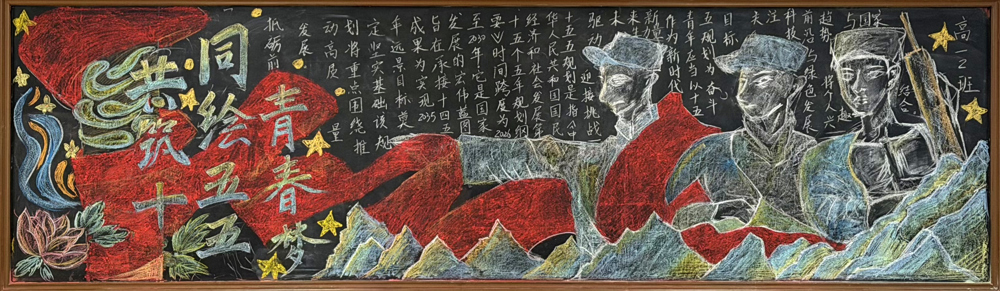 共筑十五五
同绘青春梦
高一2班
与国家
结合
趋势，将个人兴趣
前沿与绿色发展
科技
关注
目标
五规划为奋斗
青年应当以十五
作为新时代
迎接挑战
未来
驱动
十五五规划是指《中
华人民共和国国民
经济和社会发展第
十五个五年规划纲
要》时间跨度为2026
至2030年它是国家
发展的宏伟蓝图
旨在承接十四五
成果为实现2035
年远景目标奠
定坚实基础该规
划将重点围绕推
动高质量
发展
砥砺前